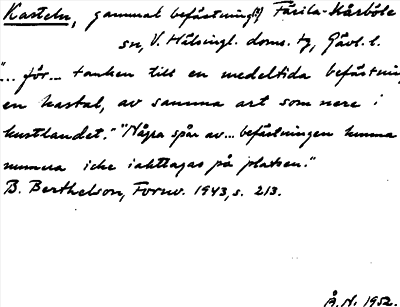 Kasteln, gammal befästning(?) Färila-Kårböle
sn, V. Hälsingl. doms. tg, Gävl. l.
"... för... tanken till en medeltida befästning
en kastal, av samma art som nere i
kustlandet." "Några spår av... befästningen kunna
numera icke iakttagas på platsen."
B. Berthelson, Fornv. 1943, s. 213.
Å.N. 1952.